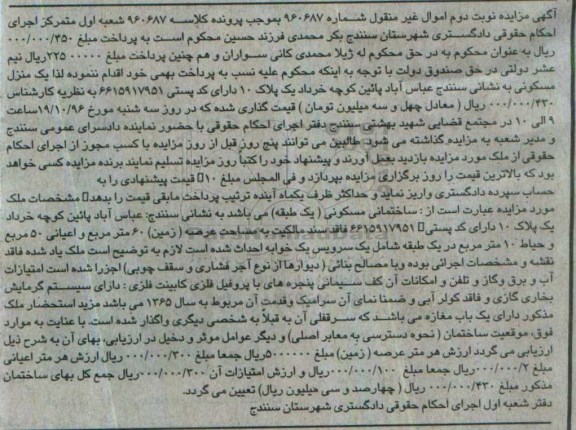 آگهی مزایده نوبت دوم اموال غیر منقول شماره ۹۶۰۶۸۷ بموجب پرونده کلاسه ۹۶۰۶۸۷ شعبه اول متمرکز اجرای
احکام حقوقی دادگستری شهرستان سنندج بکر محمدی فرزند حسین محکوم است به پرداخت مبلغ ۰۰۰/۰۰۰/۳۵۰
ریال به عنوان محکوم به در حق محکوم له ژیلا محمدی کانی سواران و هم چنین پرداخت مبلغ ۲۲۵۰۰۰۰۰ ریال نیم
عشر دولتی در حق صندوق دولت با توجه به اینکه محکوم علیه نسب به پرداخت بهمی خود اقدام ننموده لذا یک منزل
مسکونی به نشانی سنندج عباس آباد پائین کوچه خرداد یک پلاک ۱۰ دارای کد پستی ۶۶۱۵۹۱۷۹۵۱ به نظریه کارشناس
۰۰۰/۰۰۰/۴۳۰ ریال ( معادل چهل و سه میلیون تومان ) قیمت گذاری شده که در روز سه شنبه مورخ ۱۹/۱۰/۹۶ساعت
۹ الی ۱۰ در مجتمع قضایی شهید بهشتی سنندج دفتر اجرای احکام حقوقی با حضور نماینده دادسرای عمومی سنندج
و مدیر شعبه به مزایده گذاشته می شود. طالبین می توانند پنج روز قبل از روز مزایده با کسب مجوز از اجرای احکام
حقوقی از ملک مورد مزایده بازدید بعمل آورند و پیشنهاد خود را کتباً روز مزایده تسلیم نمایند برنده مزایده کسی خواهد
بود که بالاترین قیمت را روز برگزاری مزایده بپردازد و فی المجلس مبلغ ۱۰٪ قیمت پیشنهادی را به
حساب سپرده دادگستری واریز نماید و حداکثر ظرف یکماه آینده ترتیب پرداخت مابقی قیمت را بدهد مشخصات ملک
مورد مزایده عبارت است از : ساختمانی مسکونی ( یک طبقه) می باشد به نشانی سنندج: عباس آباد پائین کوچه خرداد
یک پلاک ۱۰ دارای کد پستی ۶۶۱۵۹۱۷۹۵۱ فاقد سند مالکیت به مساحت عرصه (زمین) ۶۰ متر مربع و اعیانی ۵۰ مربع
و حیاط ۱۰ متر مربع در یک طبقه شامل یک سرویس یک خوابه احداث شده است لازم به توضیح است ملک یاد شده فاقد
نقشه و مشخصات اجرائی بوده وبا مصالح بنائی ( دیوارها از نوع آجر فشاری و سقف چوبی) اجزرا شده است امتیازات
آب و برق وگاز و تلفن و امکانات آن کف سیمانی پنجره های با پروفیل فلزی کابینت فلزی : دارای سیستم گرمایش
بخاری گازی و فاقد کولر آبی و ضمنا نمای آن سرامیک وقدمت آن مربوط به سال ۱۳۶۵ می باشد مزید استحضار ملک
مذکور دارای یک باب مغازه می باشد که سرقفلی آن به قبلاً به شخصی دیگری واگذار شده است. با عنایت به موارد
فوق، موقعیت ساختمان ( نحوه دسترسی به معابر اصلی) و دیگر عوامل موثر و دخیل در ارزیابی، بهای آن به شرح ذیل
ارزیابی می گردد ارزش هر متر عرصه ( زمین) مبلغ ۵۰۰۰۰۰۰ریال جمعا مبلغ ۰۰۰/۰۰۰/۳۰۰ ریال ارزش هر متر اعیانی
مبلغ ۰۰۰/۰۰۰/۲ ریال جمعا مبلغ ۰۰۰/۰۰۰/۱۰۰ ریال و ارزش امتیازات آن ۰۰۰/۰۰۰/۳۰ریال جمع کل بهای ساختمان
مذکور مبلغ ۰۰۰/۰۰۰/۴۳۰ ریال ( چهارصد و سی میلیون ریال) تعیین می گردد.
دفتر شعبه اول اجرای احکام حقوقی دادگستری شهرستان سنندج